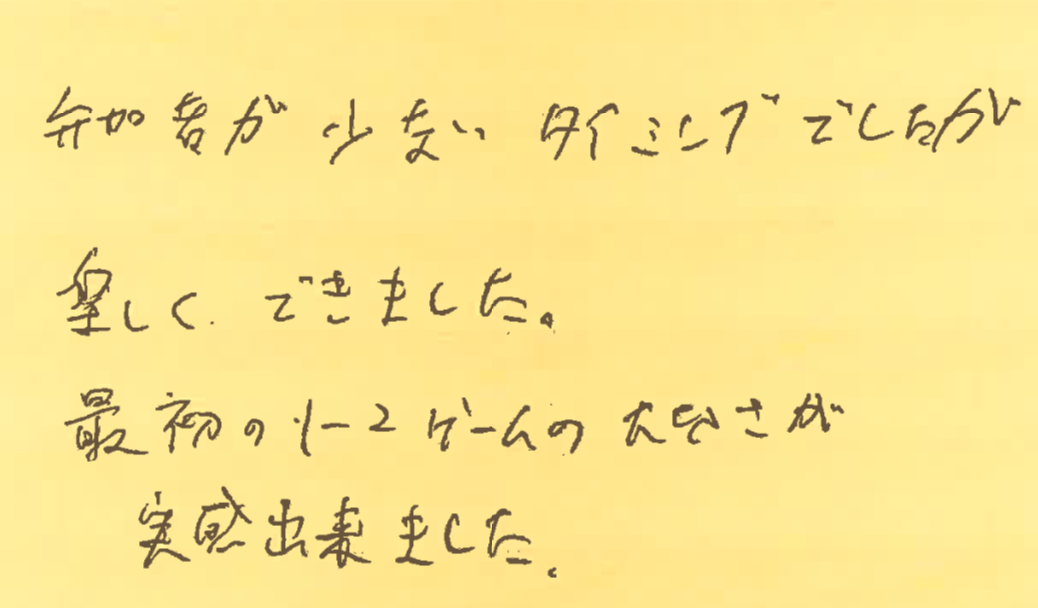 参加者が少ないタイミングでしたが
楽しくできました。
最初の1-2ゲームの大切さが
実感出来ました。